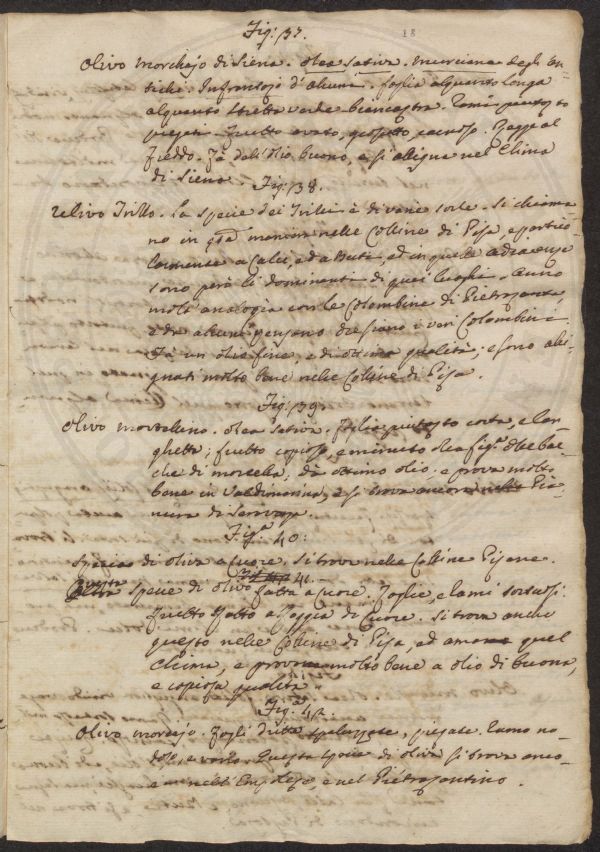 18
Fig: 37.
Olivo morchajo di Siena. Olea sativa. murciana degli An=
tichi. Infrantojo d'alcuni. foglia alquanto longa
alquanto stretta verde biancastra. Rami piuttosto
piegati. frutto ovato, carnoso. Regge al
freddo. Fà dell'olio buono, e si alligna nel Clima
di Siena.
Fig: 38.
Ulivo Trillo. La specie dei Trilli è di varie sorte. Si chiama
no in qta maniera nelle Colline di Pisa, e partico
larmente a Calci, ed a Buti, ed in quelle adiacenze
sono però li dominanti di quei luoghi. Anno
molt'analogia con le Colombine di Pietrasanta,
ed alcuni pensano che siano i veri Colombini.
Fà un olio fine, e di ottima qualità, e sono alli
gnati molto bene nelle Colline di Pisa.
Fig: 39.
Olivo morcellino. olea sativa. foglia piuttosto corta, e lar
ghetta; frutto copioso, e minuto olea figa. delle bac
che di morcella; dà ottimo olio, e prova molto
bene in Valdinievina, e si trova ancora nella Pia
nura di
Figa. 40:
Specie di oliva a Cuore. si trova nelle Colline Pisane.
Fig. 41.
Questa Specie di olivo fatta a cuore. Foglie, e rami
frutto fatto a foggia di Cuore. si trova anche
questo nelle Colline di Pisa, ed ama quel
clima, e prova molto bene a olio di buona,
e copiosa qualità.
Figa. 42
Olivo morchajo. Fogli piegate. ramo no
doso, e vario. Questa specie di oliva si trova anco
nell'Empolese, e nel Pietrasantino.